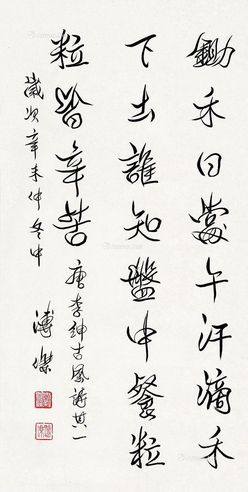 鋤禾日當午汗滴禾
下土誰知盤中餐粒
粒皆辛苦
唐李紳古風詩其一
歲次辛未仲冬中
溥傑